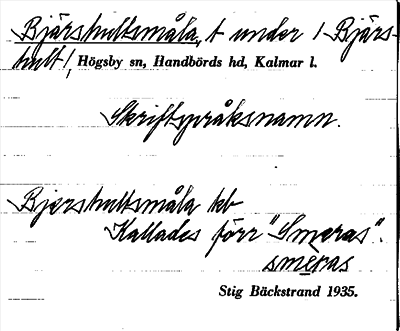 Bjärshultsmåla, t under / Bjärs-
hult/, Högsby sn, Handbörds hd, Kalmar l.
Skriftspråksnamn.
Bjershultsmåla kb
Kallades förr "Smeras".
smeras
Stig Bäckstrand 1935.